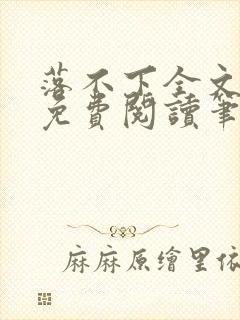 落不下全文
免費閱讀筆
麻麻原繪里依